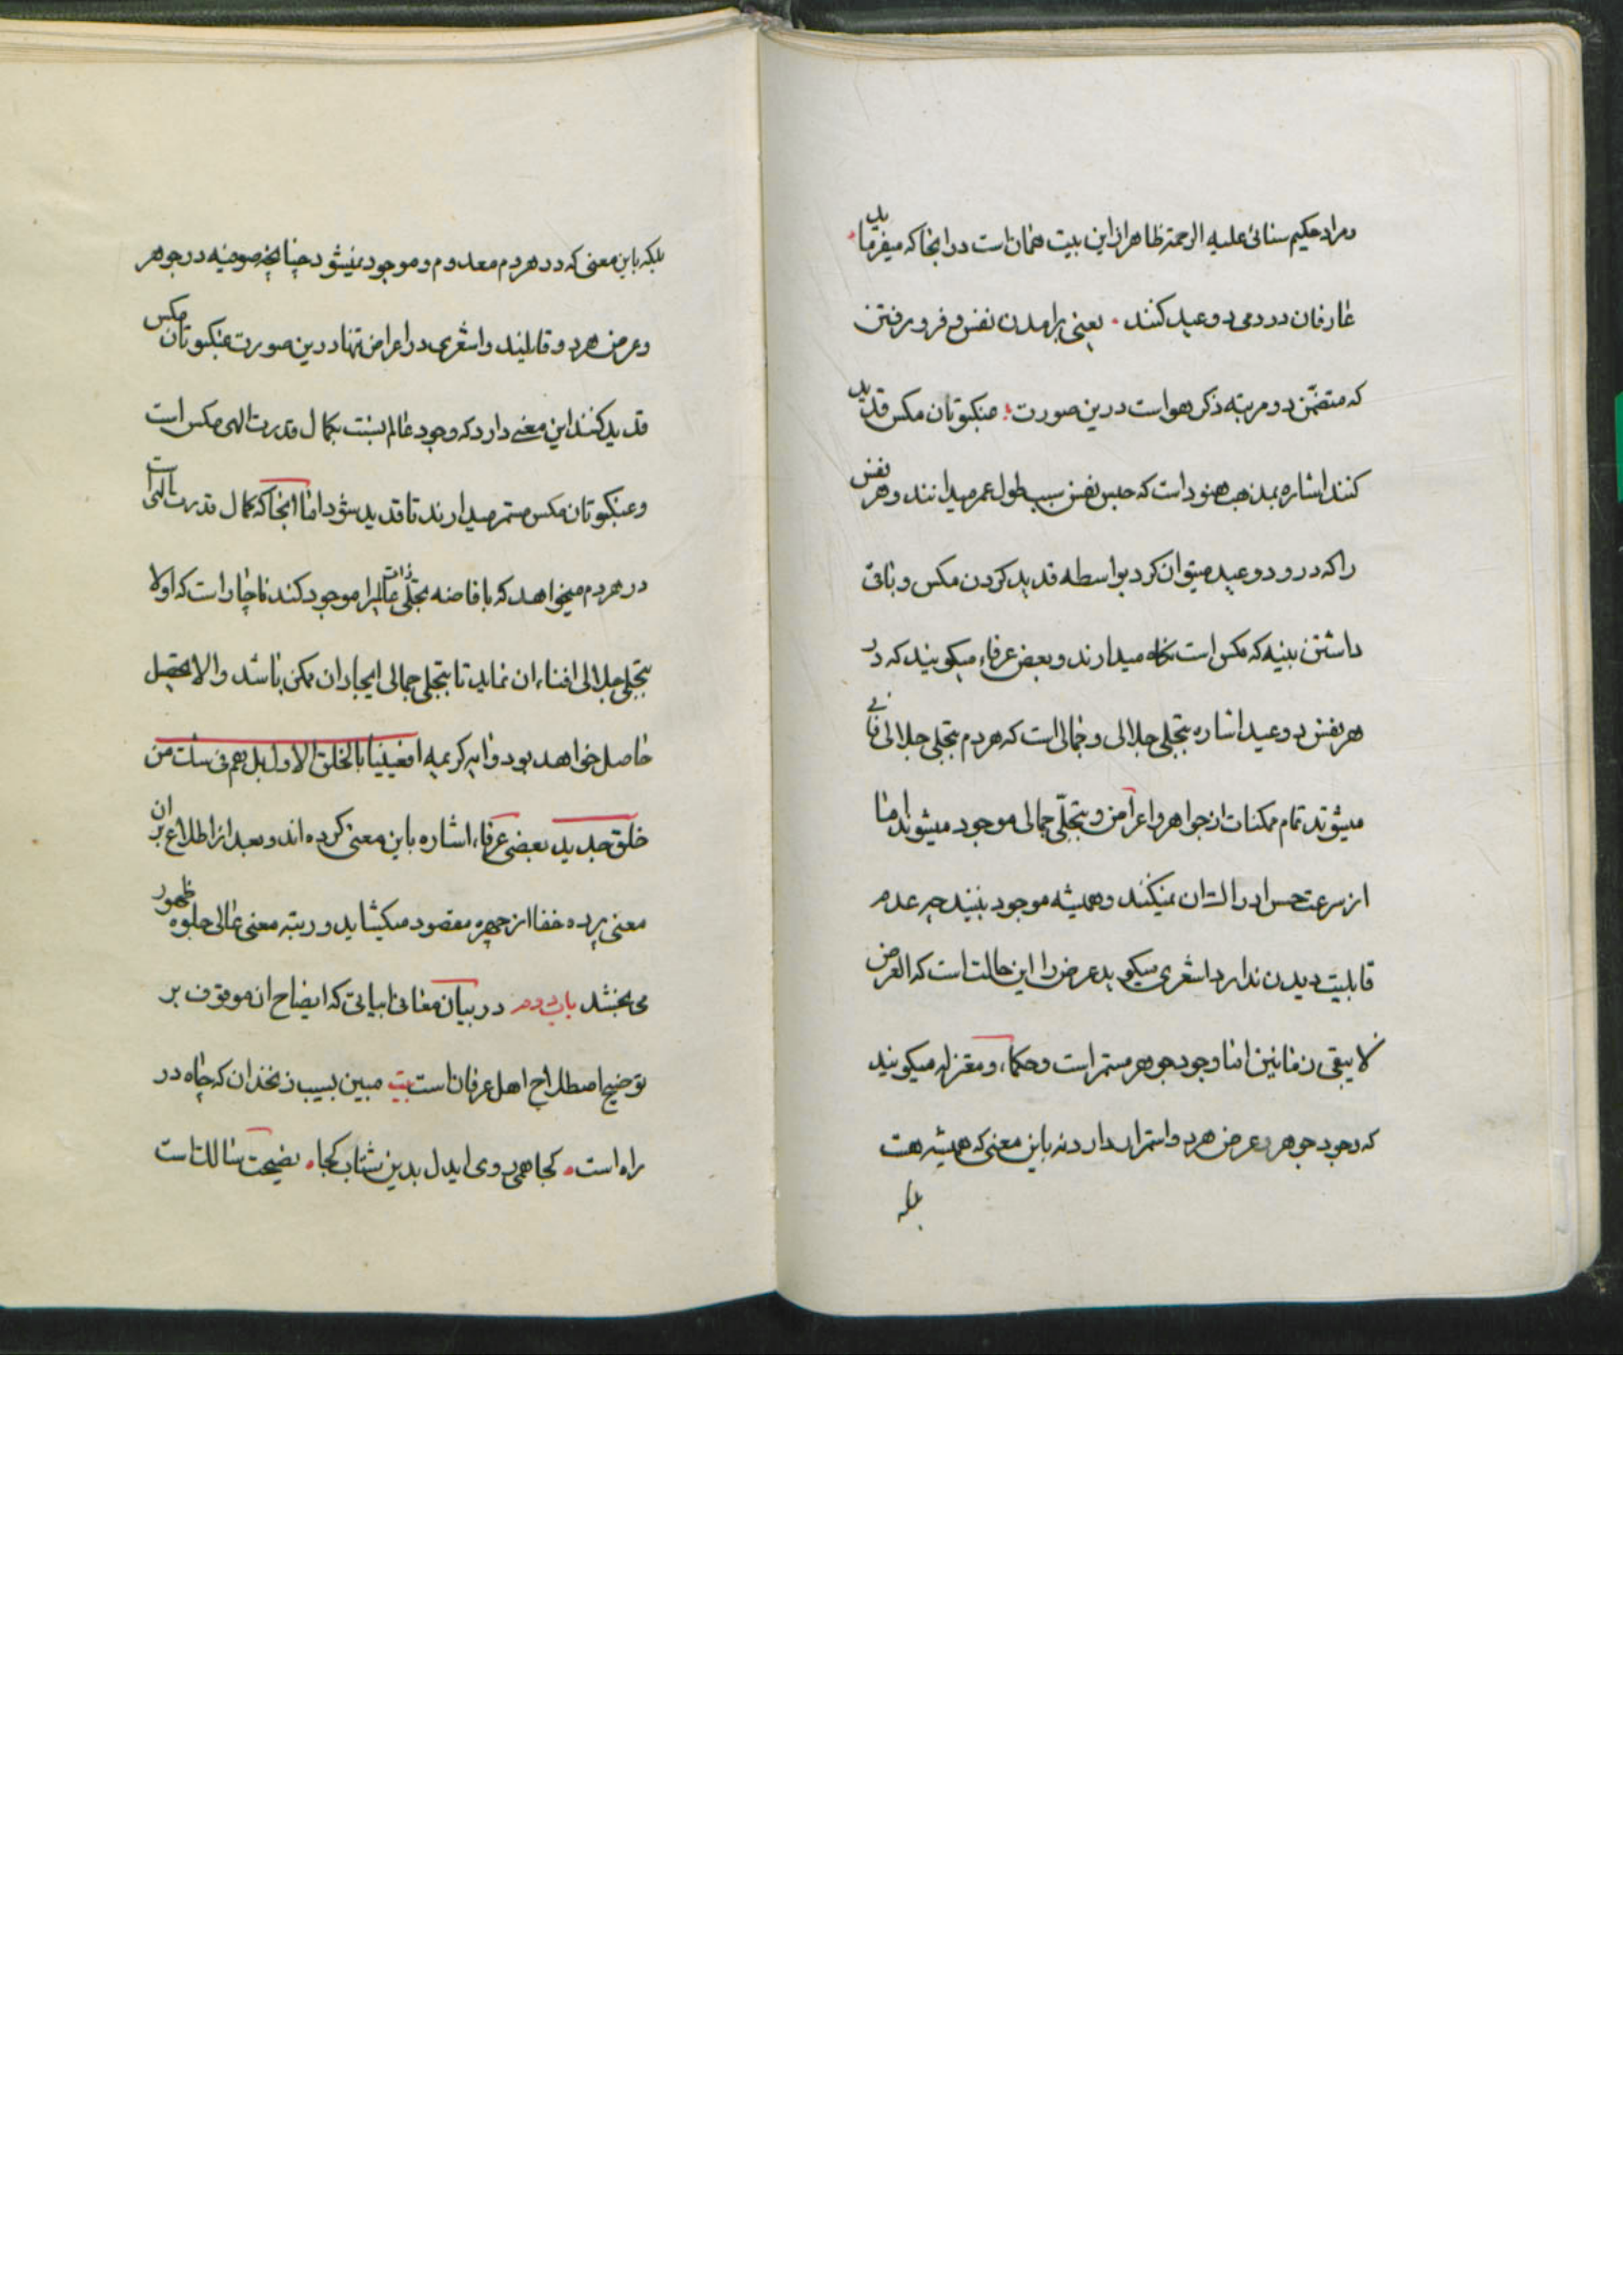 و مراد حکیم سنائی علیه الرحمة ظاهرا از این بیت همان است در انجا که میفرماید
عارفان در دمی دو عید کنند یعنی برامدن نفس و فرو رفتن
که متضمن دو مرتبه ذکر هو است درین صورت عنکبوتان مکس قدید
کنند اشاره بمذهب هنود است که حبس نفس سبب طول عمر میدانند و هر نفس
را که درو دو عید میتوان کرد بواسطه قدید کردن مکس و باقی
داشتن بنیه که مکس است نگاه میدارند و بعض عرفاء میکویند که در
هر نفس دو عید اشاره بتجلی جلالی و جمالی است که هر دم بتجلی جلالی فانی
میشوند تمام ممکنات از جواهر و اعراض و بتجلّی جمالی موجود میشوند اما
از سرعت حس ادراک ان نمیکند و همیشه موجود بیند چه عدم
قابلیت دیدن ندارد اشعری میکوید عرض را این حالت است که العرض
لا یبقی زمانین اما وجود جوهر مستمر است و حکماء و معتزله میکویند
که وجود جوهر و عرض هر دو استمرار دارد نه باین معنی که همیشه هست
بلکه
بلکه باین معنی که در هر دم معدوم و موجود نمیشود چنانچه صوفیه در جوهر
و عرض هر دو قایلیند و اشعری در اعراض تنها درین صورت عنکبوتان مکس
قدید کنند این معنی دارد که وجود عالم نسبت بکمال قدرت الهی مکس است
و عنکبوتان مکس مستمر میدارند تا قدید شود اما انجا که کمال قدرت الهی است
در هر دم میخواهد که بافاضه تجلی ذات عالم را موجود کند ناچار است که اولا
بتجلی جلالی افناء ان نماید تا بتجلی جمالی ایجاد ان ممکن باشد والا تحصیل
حاصل خواهد بود و ایه کریمه افعیینا بالخلق الاول بل هم فی لبس من
خلق جدید بعضی عرفاء اشاره باین معنی کرده اند و بعد از اطلاع بر ان
معنی پرده خفا از چهره مقصود میکشاید و رتبه معنی عالی جلوه ظهور
می بخشد باب دوم در بیان معانی ابیاتی که ایضاح ان موقوف بر
توضیح اصطلاح اهل عرفان است بیت مبین بسیب زنخدان که چاه در
راه است کجا همی روی ایدل بدین شتاب کجا نصیحت سالک است